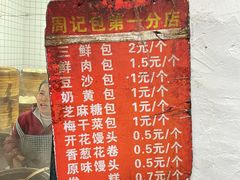 周记包第一分店
三鲜包 2元/个
鲜肉包 1.5元/个
豆沙包 1元/个
奶黄包 1元/个
芝麻糖包 1元/个
梅干菜包 1元/个
开花馒头 0.5元/个
香葱花卷 0.5元/个
原味馒头 0.5元/个
糕 0.7元/个